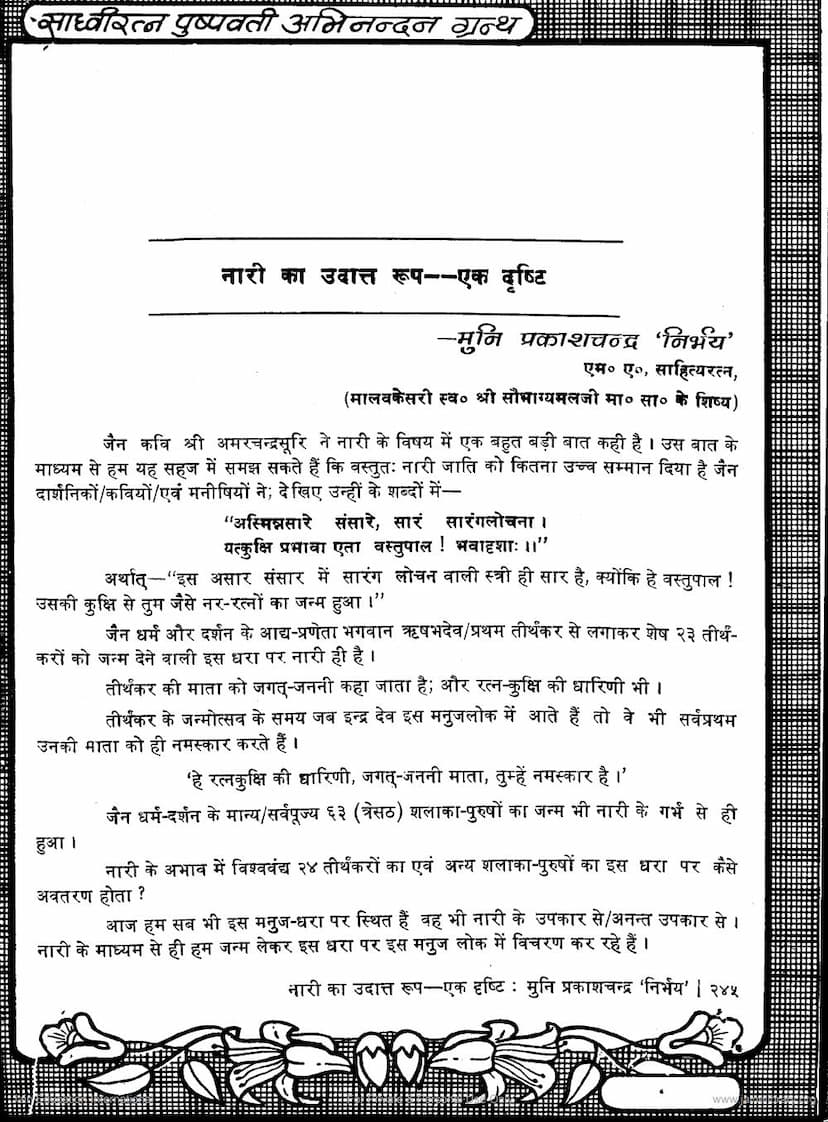 साध्वीरत्न पुष्पवती अभिनन्दन ग्रन्थ
नारी का उदात्त रूप--एक दृष्टि
—मुनि प्रकाशचन्द्र ‘निर्भय’
एम० ए०, साहित्यरत्न,
(मालवकेसरी स्व० श्री सौभाग्यमलजी मा० सा० के शिष्य)
जैन कवि श्री अमरचन्द्रसूरि ने नारी के विषय में एक बहुत बड़ी बात कही है। उस बात के
माध्यम से हम यह सहज में समझ सकते हैं कि वस्तुतः नारी जाति को कितना उच्च सम्मान दिया है जैन
दार्शनिकों/कवियों/एवं मनीषियों ने; देखिए उन्हीं के शब्दों में—
“अस्मिन्नसारे संसारे, सारं सारंगलोचना।
यत्कुक्षि प्रभावा एता वस्तुपाल ! भवादृशाः।।”
अर्थात्—“इस असार संसार में सारंग लोचन वाली स्त्री ही सार है, क्योंकि हे वस्तुपाल !
उसकी कुक्षि से तुम जैसे नर-रत्नों का जन्म हुआ।”
जैन धर्म और दर्शन के आद्य-प्रणेता भगवान ऋषभदेव/प्रथम तीर्थंकर से लगाकर शेष २३ तीर्थं-
करों को जन्म देने वाली इस धरा पर नारी ही है।
तीर्थंकर की माता को जगत्-जननी कहा जाता है; और रत्न-कुक्षि की धारिणी भी।
तीर्थंकर के जन्मोत्सव के समय जब इन्द्र देव इस मनुजलोक में आते हैं तो वे भी सर्वप्रथम
उनकी माता को ही नमस्कार करते हैं।
‘हे रत्नकुक्षि की धारिणी, जगत्-जननी माता, तुम्हें नमस्कार है।’
जैन धर्म-दर्शन के मान्य/सर्वपूज्य ६३ (त्रेसठ) शलाका-पुरुषों का जन्म भी नारी के गर्भ से ही
हुआ।
नारी के अभाव में विश्ववंद्य २४ तीर्थंकरों का एवं अन्य शलाका-पुरुषों का इस धरा पर कैसे
अवतरण होता ?
आज हम सब भी इस मनुज-धरा पर स्थित हैं वह भी नारी के उपकार से/अनन्त उपकार से।
नारी के माध्यम से ही हम जन्म लेकर इस धरा पर इस मनुज लोक में विचरण कर रहे हैं।
नारी का उदात्त रूप—एक दृष्टि : मुनि प्रकाशचन्द्र ‘निर्भय’ | २४५